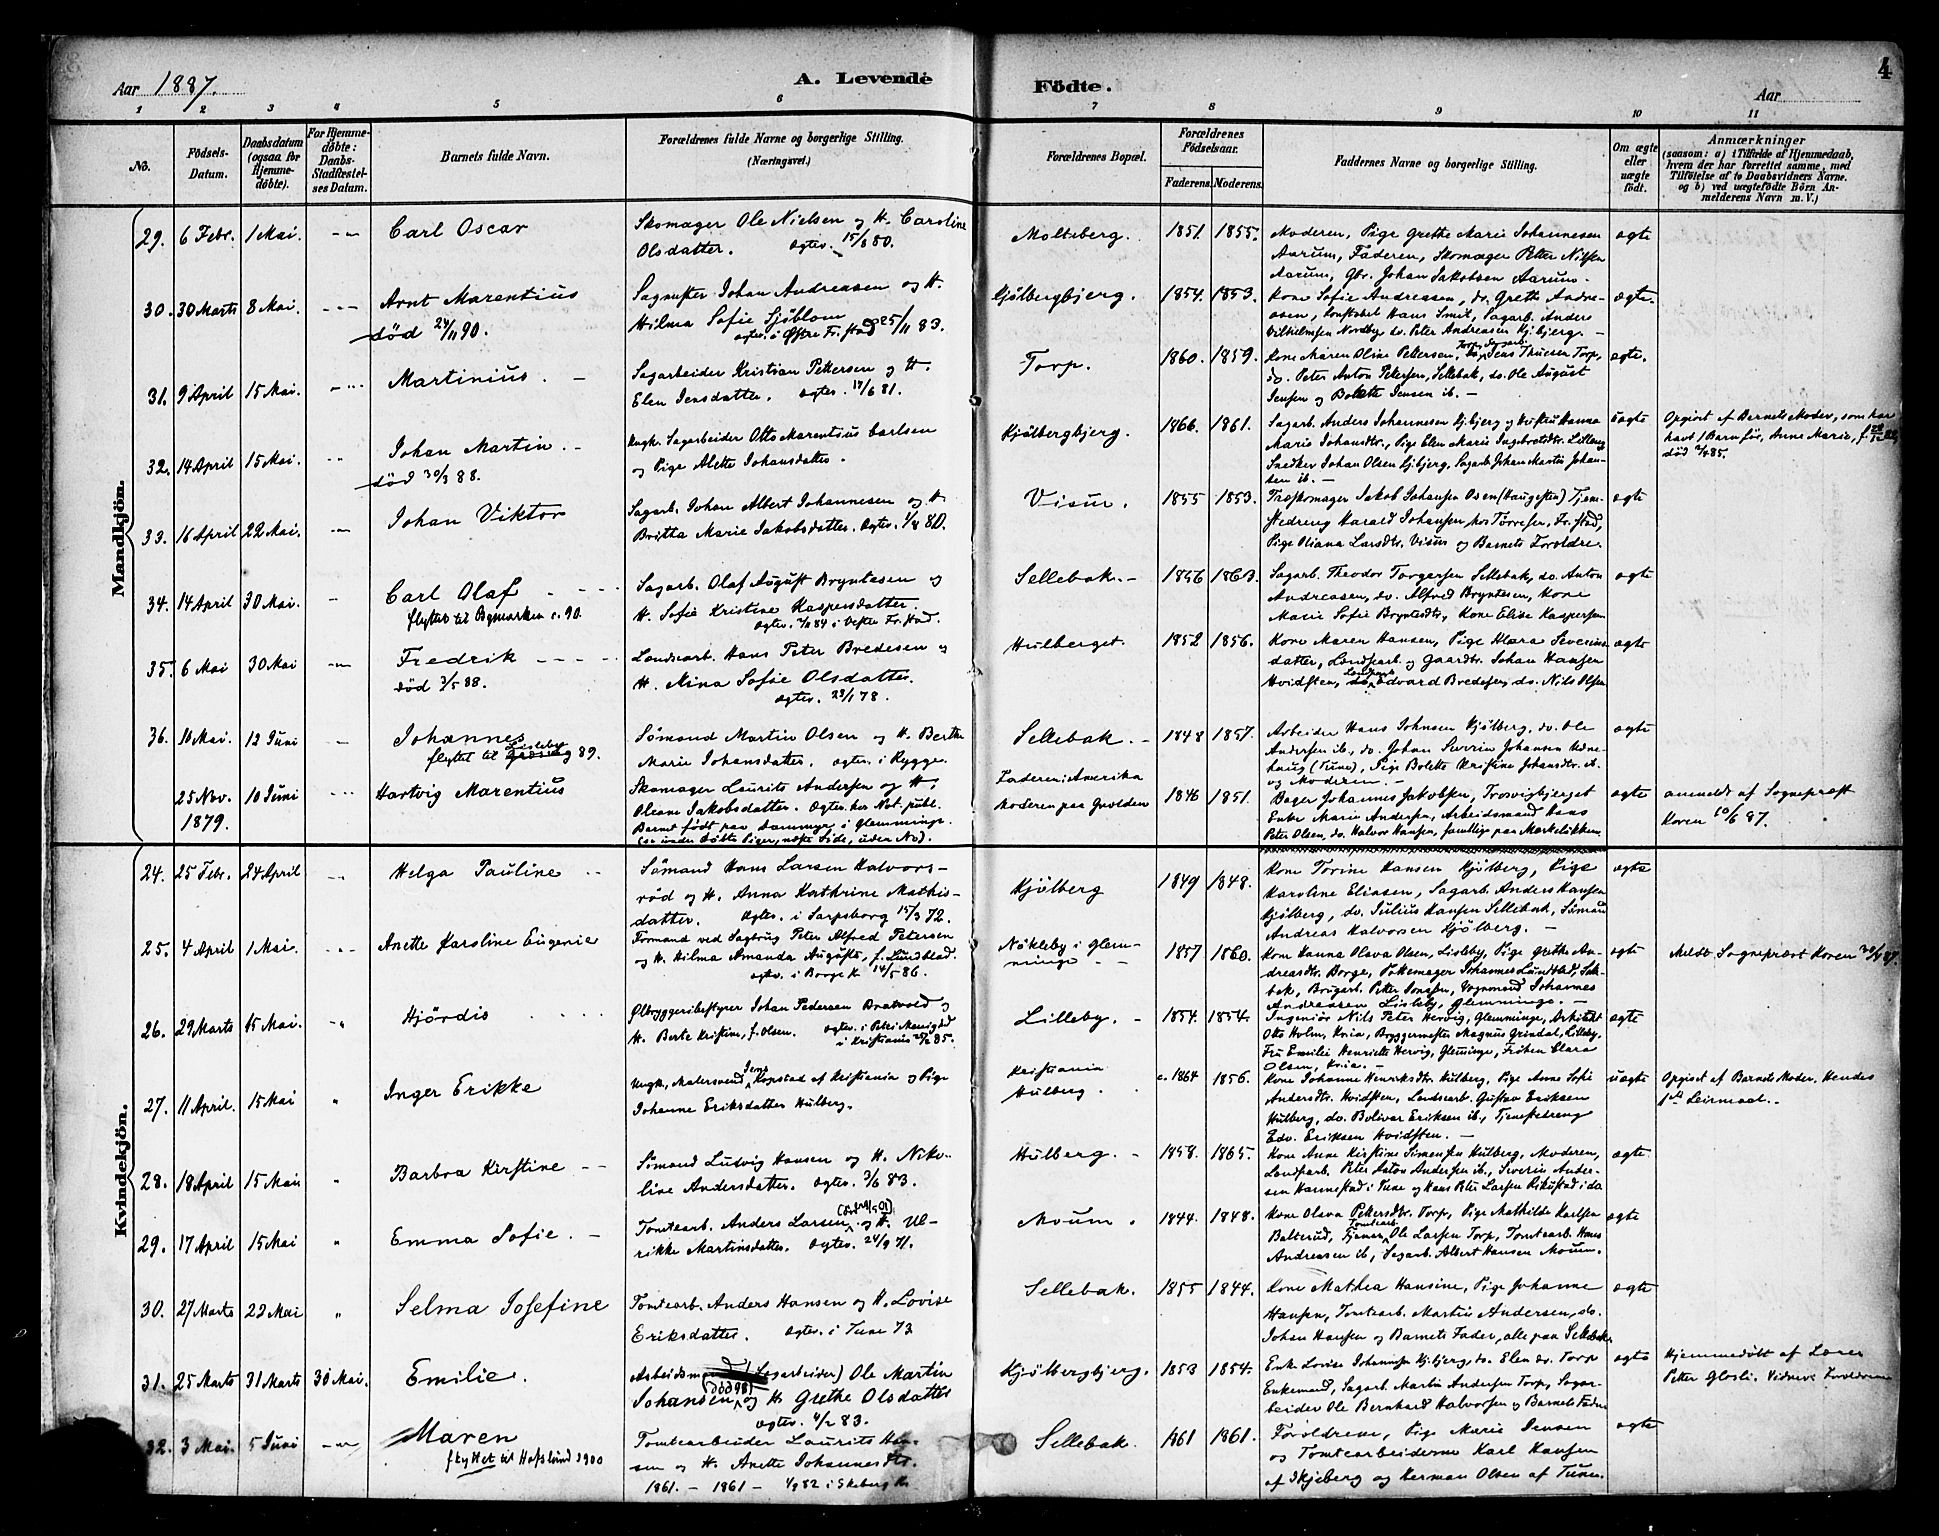 Aar 1887.
A. Levende Födte.
Aar
4
1 2 3 4 5 6 7 8 9 10 11
No.
Födsels-Datum.
Daabsdatum (ogsaa for Hjemmedøbte).
For Hjemmedøbte: Daabs-Stadfæstelses Datum.
Barnets fulde Navn.
Forældrenes fulde Navne og borgerlige Stilling. (Næringsvei.)
Forældrenes Bopæl.
Forældrenes Födselsaar.
Faderens. Moderens.
Faddernes Navne og borgerlige Stilling.
Om ægte eller uægte födt.
Anmærkninger
(saasom: a) i Tilfælde af Hjemmedaab, hvem der har forrettet samme, med Tilföielse af to Daabsvidners Navne. og b) ved uægtefödte Börn Anmelderens Navn m. V.)
Mandkjön.
29. 6 Febr. 1 Mai. Carl Oscar
Skomager Ole Nielsen og H. Caroline
Olsdatter. Ogtev. 15/8 80.
Molteberg. 1851. 1855.
Moderen, Pige Grethe Marie Johannesen
Aarum, Faderen, Skomager Petter Nilsen
Aarum, Gbr. Johan Jakobsen Aarum.
ægte
30. 30 Marts 8 Mai. Arnt Marentius
død 24/11 90.
Sagmster Johan Andreasen og H.
Hilma Sofie Sjöblom
ogtev. i Østre Fr.stad 25/11 83.
Kjölbergbjerg. 1854. 1853.
Kone Sofie Andreasen, do. Grethe Andre-
asen, Hans Smit, Sagarb. Anders
Vilhelmsen Nordby do. Peter Andreasen Kj.bjerg. -
ægte.
31. 9 April 15 Mai. Martinius.
Sagarbeider Kristian Pettersen og H.
Elen Jensdatter. ogtev. 17/6 81.
Torp. 1860. 1859.
Kone Maren Oline Pettersen, Torp, Sagarb. Jens Thuesen Torp,
do. Peter Anton Petersen, Sellebak, do. Ole August
Jensen og Bolette Jensen ib. -
ægte.
32. 14 April 15 Mai. Johan Martin.
død 30/3 88.
Ungk. Sagarbeider Otto Marentius Carlsen
og Pige Alette Johansdatter.
Kjölbergbjerg. 1866. 1861.
Sagarb. Anders Johannesen Kj.bjerg og Hustru Hanna
Marie Johansdtr., Pige Elen Marie
Snedker Johan Olsen Kj.bjerg, Sagarb. Johan Martin Johan-
sen ib. -
uægte
Opgivet af Barnets Moder, som har
havt 1 Barn för, Anne Marie, f.
død 85.
33. 16 April 22 Mai. Johan Viktor
Sagarb. Johan Albert Johannesen og H.
Britta Marie Jakobsdatter. Ogtev. 80.
Visur. 1855 1853.
Træskomager Jakob Johansen Osen (Haugesten) Tjen-
stedreng Harald Johansen, hos Torresen, Fr.stad,
Pige Oliana Larsdtr. Visur og Barnets Forældre.
ægte
34. 14 April 30 Mai. Carl Olaf
flyttet til Bymarken c. 90.
Sagarb. Olaf August Bryntesen og
H. Sofie Kristine Kaspersdatter.
Ogtev. 84 i Vestre Fr.stad.
Sellebak. - 1856 1863.
Sagarb. Theodor Torgersen Sellebak, do. Anton
Andreasen, do. Alfred Bryntesen, Kone
Marie Sofie Bryntesdtr, Kone Elise Kaspersen
ægte
35. 6 Mai 30 Mai Fredrik
død 3/5 88.
Landsearb. Hans Peter Bredesen og
H. Nina Sofie Olsdatter.
ogtev. 23/1 78.
Hulberget. 1852 1856.
Kone Maren Hansen, Pige Klara Severins-
datter, Landsearb. og Gaardbr. Johan Hansen
Hvidsten, Landsearb. Edvard Bredesen, do. Nils Olsen
ægte
36. 10 Mai. 12 Juni Johannes
flyttet til Lisleby 89.
Sömand Martin Olsen og H. Berthe
Marie Johansdatter. ogtev. i Rygge.
Sellebak. - 1848 1857.
Arbeider Hans Johnsen Kjölberg, do. Ole
Andersen ib., do. Johan Severin Johansen Hedne-
haug (Tune), Pige Bolette Kristine Johansdtr. ib.
og Moderen. -
ægte
25 Nov. 1879. 10 Juni Hartvig Marentius
Skomager Laurits Andersen og H.
Oleane Jakobsdatter. Ogtev. hos Not. publ.
Barnet födt paa Dammyr i Glemminge.
(se under döbte Piger, næste Side, uden No).
Faderen i Amerika
Moderen paa Gudeden
1846 1851.
Bager Johannes Jakobsen, Trosvigbjerget
Enke Marie Andersen, Arbeidsmand Hans
Peter Olsen, do. Halvor Hansen, samtlige paa Mærkelikken.
ægte
anmeldt af Sognepræst
Koren 10/6 87.
Kvindekjön.
24. 25 Febr. 24 April Helga Pauline
Sömand Hans Larsen Halvors-
röd og H. Anna Kathrine Mathis-
datter. Ogtev. i Sarpsborg 15/3 72.
Kjölberg 1849 1848.
Kone Torine Hansen Kjölberg, Pige
Karoline Eliasen, Sagarb. Anders Hansen
Kjölberg, do. Julius Hansen Sellebak, Sömand
Andreas Halvorsen Kjölberg. -
ægte
25. 4 April 1 Mai. Anette Karoline Eugenie
Formand ved Sagbrug Peter Alfred Petersen
og H. Hilma Amanda Augusta, f. Lundblad.
ogtev. i Borge K. 14/5 86.
Nökleby i Glem-
minge
1857 1860.
Kone Hanna Olava Olsen, Lisleby, Pige Grethe An-
dreasdtr. Borge, Johannes Lundblad, Selle-
bak, Brugarb. Petter Jonsen, Johannes
Andreassen Lisleby, Glemminge. -
ægte
Meldt Sognepræst Koren 30/4 87.
26. 29 Marts 15 Mai. Hjördis
Ölbryggeribestyrer Johan Pedersen Bratvold og
H. Berte Kristine, f. Olsen. ogtev. i Petri Menighed
i Kristiania 85.
Lilleby. - 1854. 1854.
Ingeniör Nils Peter Hervig, Glemminge, Arkitekt
Otto Holm, Kria, Bryggermester Magnus Grindal, Lilleby,
Fru Emilie Henriette Hervig, Glemminge, Fröken Clara
Olsen, Kria. -
ægte
27. 11 April. 15 Mai Inger Erikke
Ungk. Malersvend Jens Kopstad af Kristiania og Pige
Johanne Eriksdatter Hulberg.
Kristiania
Hulberg.
c. 1864 1856.
Kone Johanne Henriksdtr. Hulberg, Pige Anne Sofie
Andersdtr. Hvidsten, Landsearb. Gustav Eriksen
Hulberg, do. Bolivar Eriksen ib., Tjenstedreng
Edv. Eriksen Hvidsten. -
uægte
Opgivet af Barnets Moder. Hendes
1ste Leiermaal. -
28. 18 April 15 Mai Barbra Kirstine
Sömand Ludvig Hansen og H. Niko-
line Andersdatter. Ogtev. 3/6 83.
Hulberg. - 1858. 1865.
Kone Anne Kirstine Simensen Hulberg, Moderen,
Landsarb. Peter Anton Andersen ib., Severin Ander-
sen Hannestad i Tune og Hans Peter Larsen Rikustad i do
ægte
29. 17 April 15 Mai Emma Sofie.
Tomtearb. Anders Larsen og H. Ul-
rikke Martinsdatter. Ogtev. 24/9 71.
Moum. 1844. 1848.
Kone Olava Pettersdtr. Torp, Pige Mathilde Karlsen
Balterud, Tomtearb. Ole Larsen Torp, Tomtearb. Hans
Andreasen ib., Sagarb. Albert Hansen Moum.
ægte
30. 27 Marts 22 Mai Selma Josefine
Tomtearb. Anders Hansen og H. Lovise
Eriksdatter. Ogtev. i Tune 73
Sellebak. 1855 1844.
Kone Mathea Hansine, Pige Johanne
Hansen, Tomtearb. Martin Andersen, do.
Johan Hansen og Barnets Fader, alle paa Sellebak.
ægte
31. 25 Marts 31 Marts 30 Mai. Emilie.
Arbeidsmand (Sagarbeider) Ole Martin
Johansen (död 98) og H. Grethe Olsdatter
ogtev. 4/2 83.
Kjölbergbjerg. 1853 1854.
Enke Lovise Johannesen Kj.bjerg, do. Elen do. Torp
Enkemand, Sagarb. Martin Andersen Torp, Sagar-
beider Ole Bernhard Halvorsen og Barnets Fader
ægte
Hjemmedöbt af Lærer
Petter Glosli. Vidner: Forældrene
32. 3 Mai. 5 Juni Maren
flyttet til Hafslund 1900
Tomtearbeider Laurits Han-
sen og H. Anette Johannesdtr.
1861. - 1861 - 82 i Skeberg K.
Sellebak. 1861 1861.
Forældrene, Pige Marie Jensen
og Tomtearbeiderne Karl Hansen
af Skjeberg og Herman Olsen af Tune.
ægte